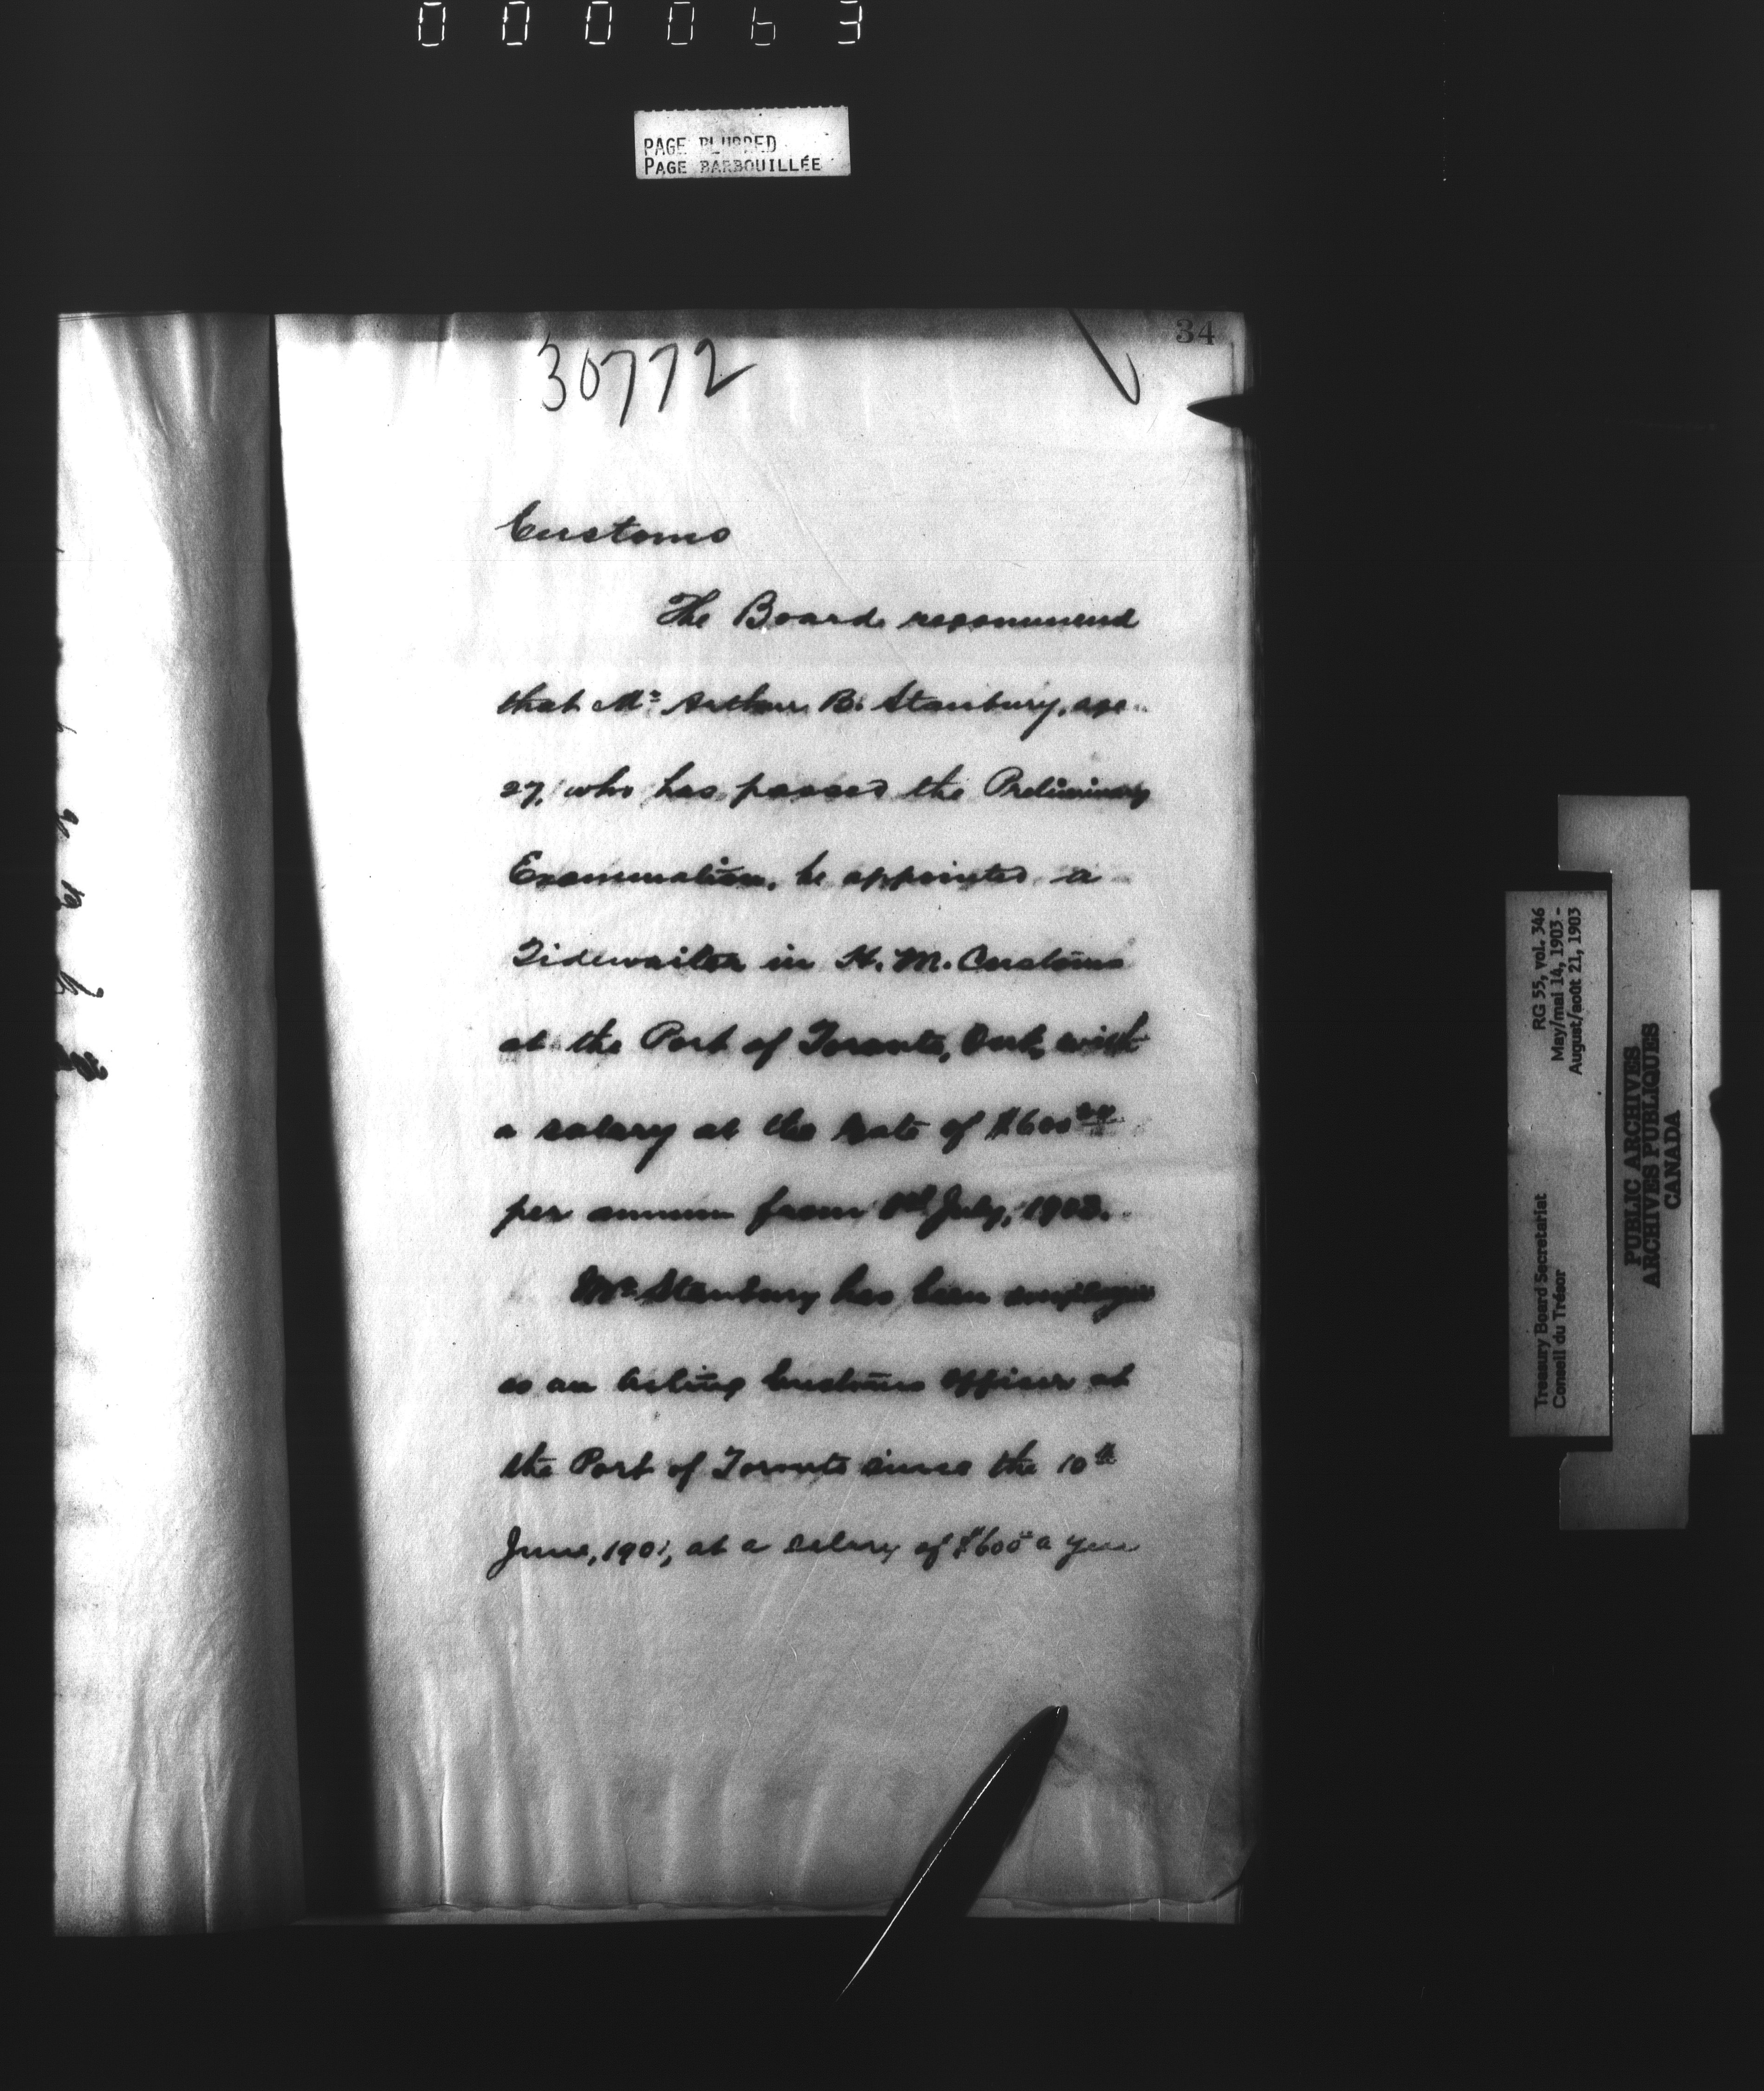 000063
PAGE BLURRED
PAGE BARBOUILLÉE
34
30772
Customs
The Board recommend
that Mr Arthur B. Stanbury, age
27, who has passed the Preliminary
Examination, be appointed a
Tidewaiter in H. M. Customs
at the Port of Toronto, Ont, with
a salary at the rate of $600.00
per annum from 1st July, 1903.
Mr Stanbury has been employed
as an Acting Customs Officer at
the Port of Toronto since the 10th
June, 1901, at a salary of $600 a year
Treasury Board Secretariat RG 55, vol. 346
Conseil du Trésor May/mai 14, 1903 -
August/août 21, 1903
PUBLIC ARCHIVES
ARCHIVES PUBLIQUES
CANADA